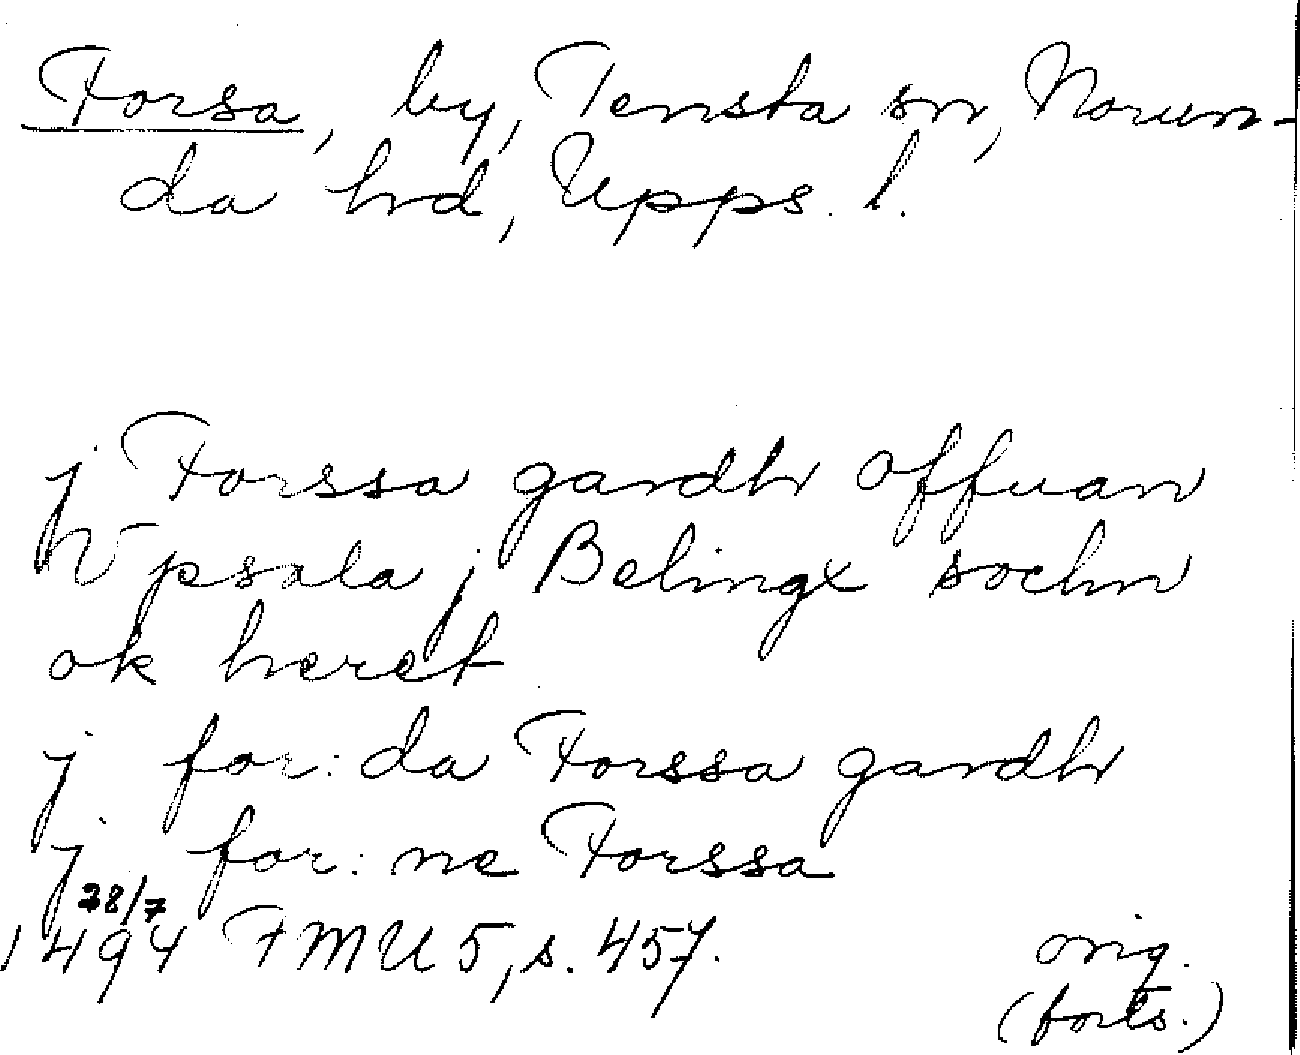 Forsa, by, Tensta sn, Norun-
da hd, Upps. l.
j Forssa gardh offuan
Vpsala j Belingx sochn
ok heret
j for: da Forssa gardh
j for: ne Forssa
28/7
1494 FMU 5, s. 457. orig.
(forts.)